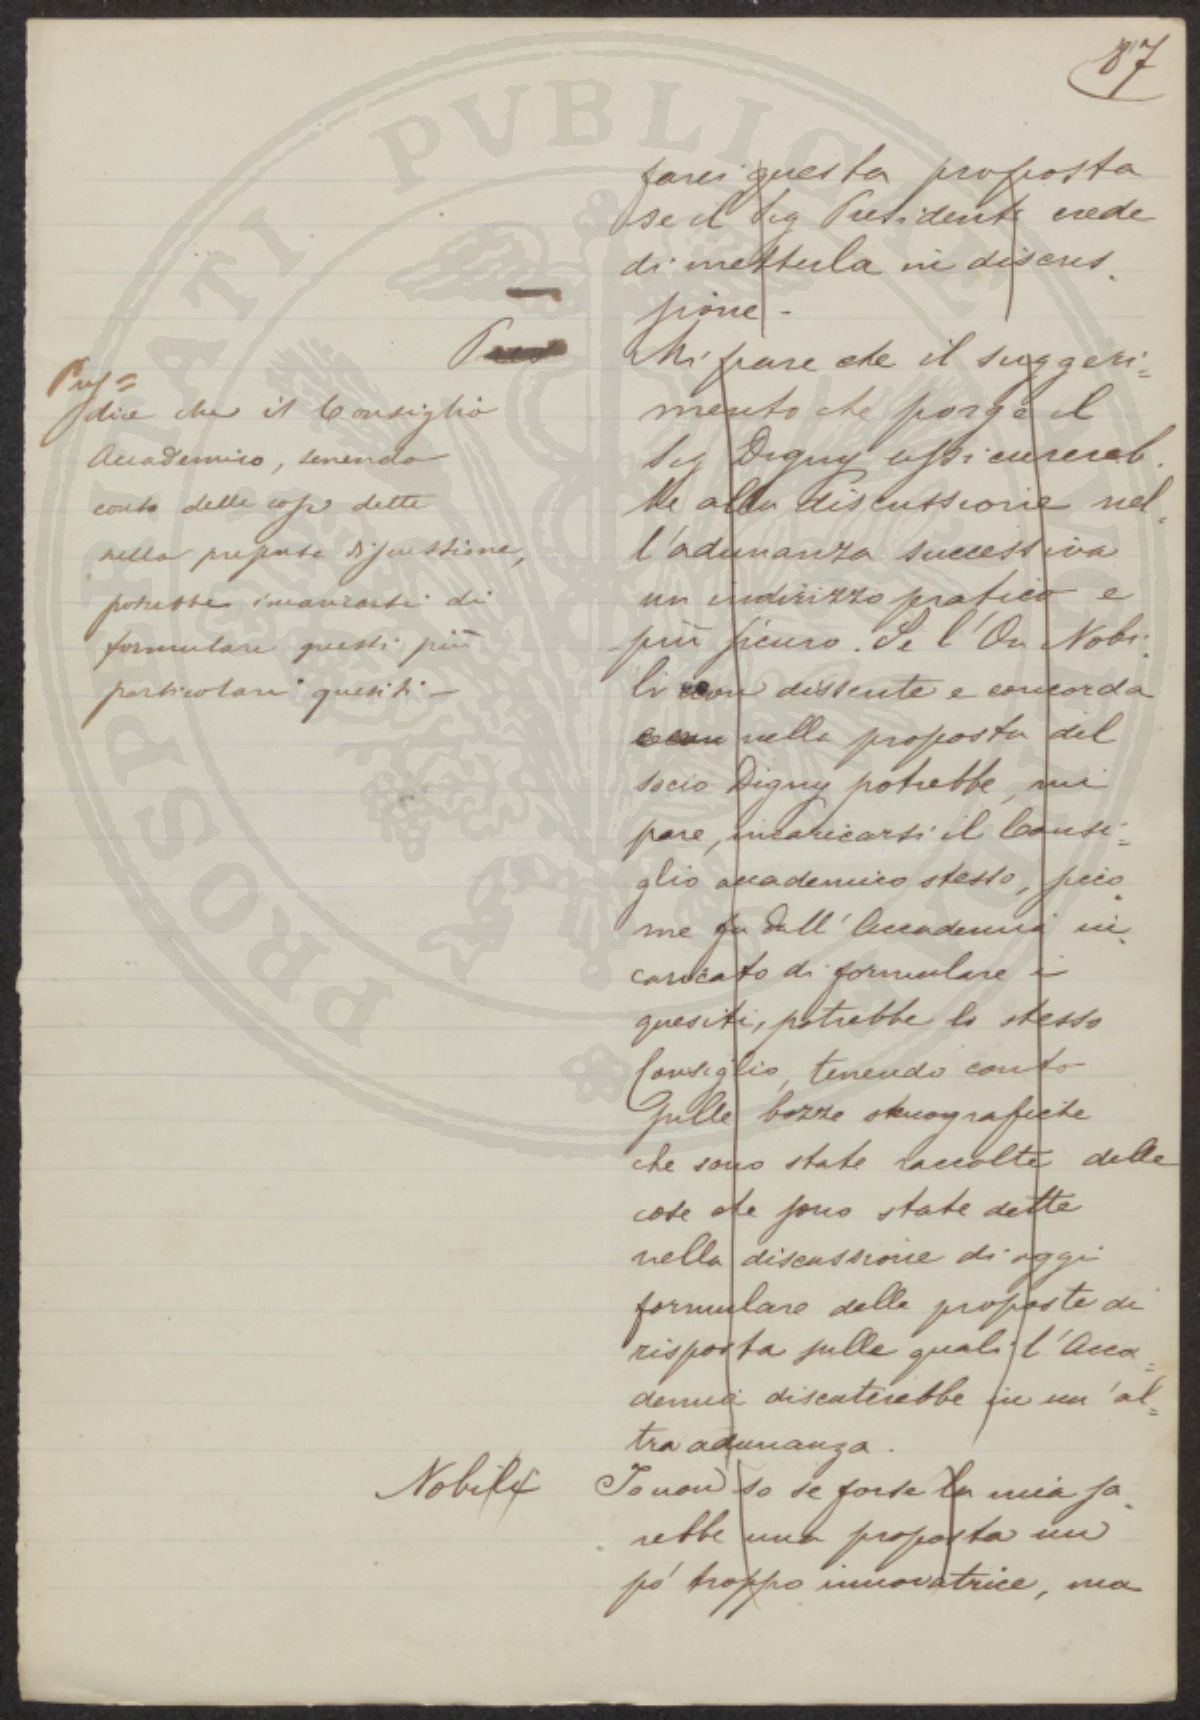 87
farei questa proposta
se il Sig Presidente crede
di metterla in discus-
sione -
Pres
Mi pare che il suggeri=
mento che porge il
Sig Digny assicurereb-
be alla discussione nel-
l'adunanza successiva
un indirizzo pratico e
più sicuro. Se l'On Nobi-
li non dissente e concorda
nella proposta del
socio Digny potrebbe, mi
pare, incaricarsi il Consi=
glio accademico stesso, sico-
me fu dall'Accademia in-
caricato di formulare i
quesiti, potrebbe lo stesso
Consiglio, tenendo conto
sulle bozze stenografiche
che sono state raccolte delle
cose che sono state dette
nella discussione di oggi
formulare delle proposte di
risposta sulle quali l'Acca=
demia discuterebbe in un'al=
tra adunanza.
Nobili
Io non so se forse la mia sa-
rebbe una proposta un
pó troppo innovatrice, ma
Pres=
dice che il Consiglio
Accademico, tenendo
conto delle cose dette
nella presente discussione,
potrebbe incaricarsi di
formulare questi più
particolari quesiti -
PROSPERITATI PVBLICAE